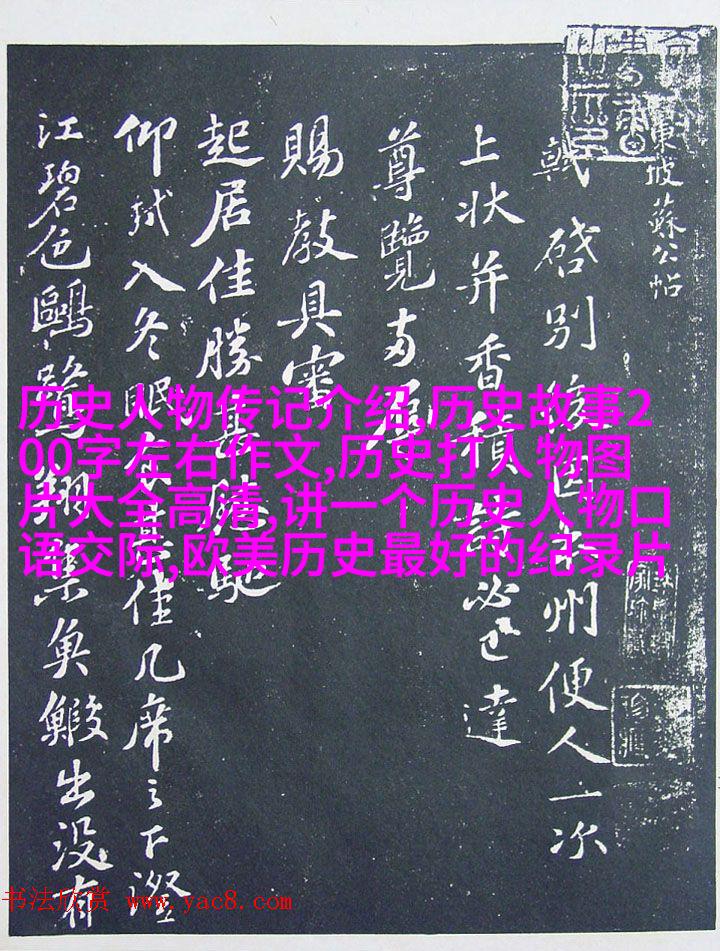 東坡蘇公帖
軾啓別後因本州便人一次
上狀并香積數必已達
尊覽兩辱
賜教具審
起居佳勝甚慰馳
仰軾入冬眠食甚佳几席之下澄
江碧色鷗鷺翔集魚鰕出没有
历史人物传记介绍,历史故事2
00字左右作文,历史打人物图
片大全高清,讲一个历史人物口
语交际,欧美历史最好的纪录片
书法欣赏 www.yac8.com